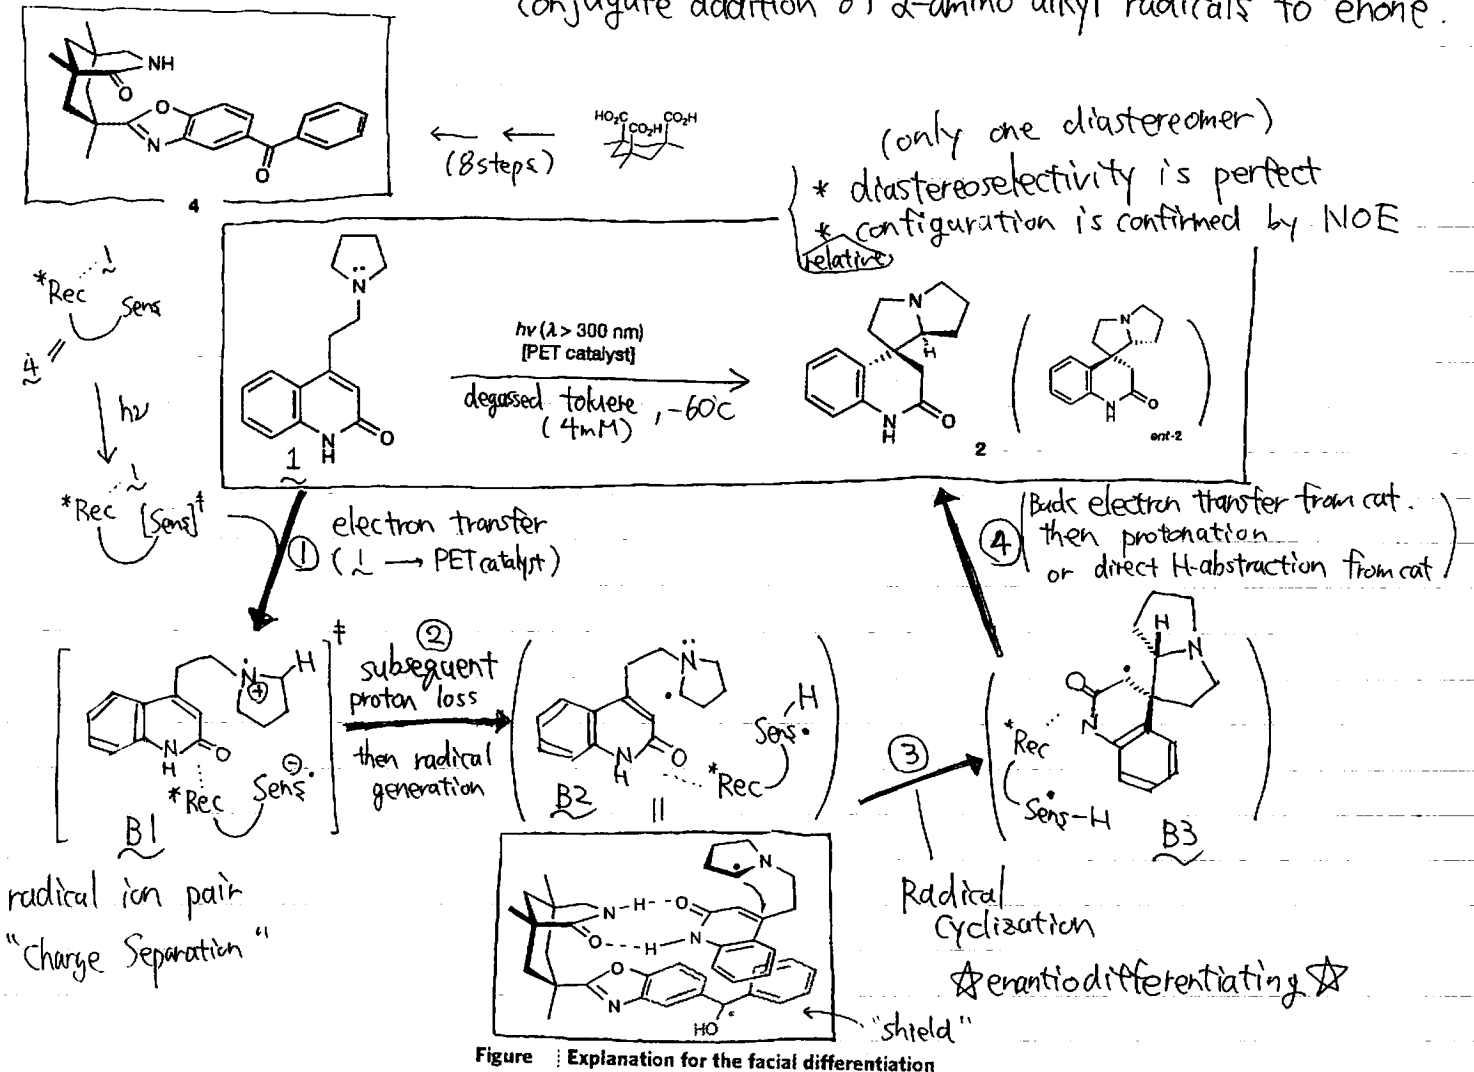 conjugate addition of α-amino alkyl radicals to enone.
NH
O
O
N
O
4
(8 steps)
HO₂C
CO₂H
CO₂H
(only one diastereomer)
* diastereoselectivity is perfect
* configuration is confirmed by NOE
relative
1
*Rec
Sens
4
hν
1
*Rec [Sens]‡
N
N
H
O
1
hν (λ > 300 nm)
[PET catalyst]
degassed toluene, -60°C
(4mM)
N
H
N
H
O
2
N
N
H
O
ent-2
① electron transfer
(1 → PET catalyst)
④ (Back electron transfer from cat.
then protonation
or direct H-abstraction from cat)
‡
N
⊕
H
N
H
O
*Rec
Sens
⊖
B1
radical ion pair
"Charge Separation"
②
subsequent
proton loss
then radical
generation
N
N
H
O
*Rec
Sens
H
B2
③
H
N
O
N
*Rec
Sens-H
B3
Radical
cyclization
☆ enantiodifferentiating ☆
N
N-H---O
O---H-N
O
N
HO
"shield"
Figure Explanation for the facial differentiation